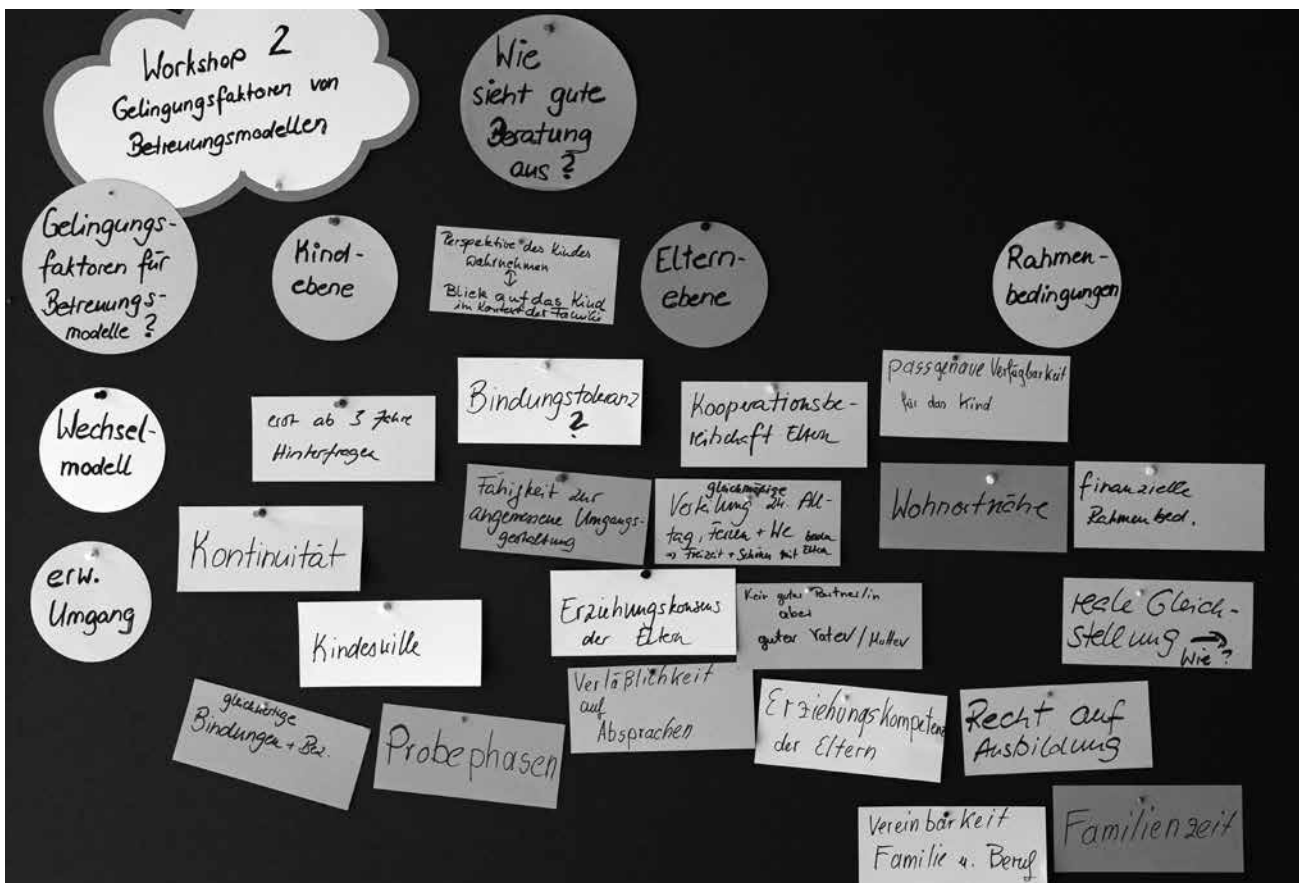 Workshop 2
Gelingungsfaktoren von
Betreuungsmodellen
Wie
sieht gute
Beratung
aus ?
Gelingungs-
faktoren für
Betreuungs-
modelle ?
Kind-
ebene
Perspektive des Kindes
wahrnehmen
↕
Blick auf das Kind
im Kontext der Familie
Eltern-
ebene
Rahmen-
bedingungen
Wechsel-
modell
erst ab 3 Jahre
Hinterfragen
Bindungstoleranz
?
Kooperationsbe-
reitschaft Eltern
passgenaue Verfügbarkeit
für das Kind
Fähigkeit zur
angemessene Umgangs-
gestaltung
gleichmäßige
Verteilung zw. All-
tag, Ferien + We
⇒ Freizeit + Schönes mit beiden Eltern
Wohnortnähe
finanzielle
Rahmenbed.
erw.
Umgang
Kontinuität
Kindeswille
Erziehungskonsens
der Eltern
Kein guter Partner/in
aber
guter Vater/Mutter
reale Gleich-
stellung →
Wie ?
gleichwertige
Bindungen + Bez.
Probephasen
Verläßlichkeit
auf
Absprachen
Erziehungskompetenz
der Eltern
Recht auf
Ausbildung
Vereinbarkeit
Familie u. Beruf
Familienzeit